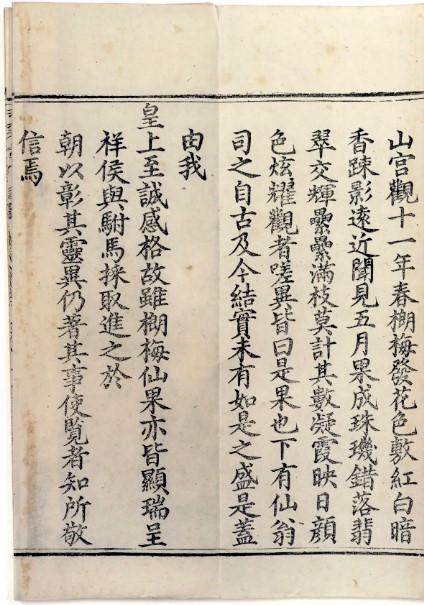 山宮觀十一年春榔梅發花色敷紅白暗
香踈影遠近聞見五月果成珠璣錯落翡
翠交輝纍纍滿枝莫計其數凝霞映日顔
色炫耀觀者嗟異皆曰是果也下有仙翁
司之自古及今結實未有如是之盛是蓋
由我
皇上至誠感格故雖榔梅仙果亦皆顯瑞呈
祥侯與駙馬採取進之於
朝以彰其靈異仍著其事使覽者知所敬
信焉